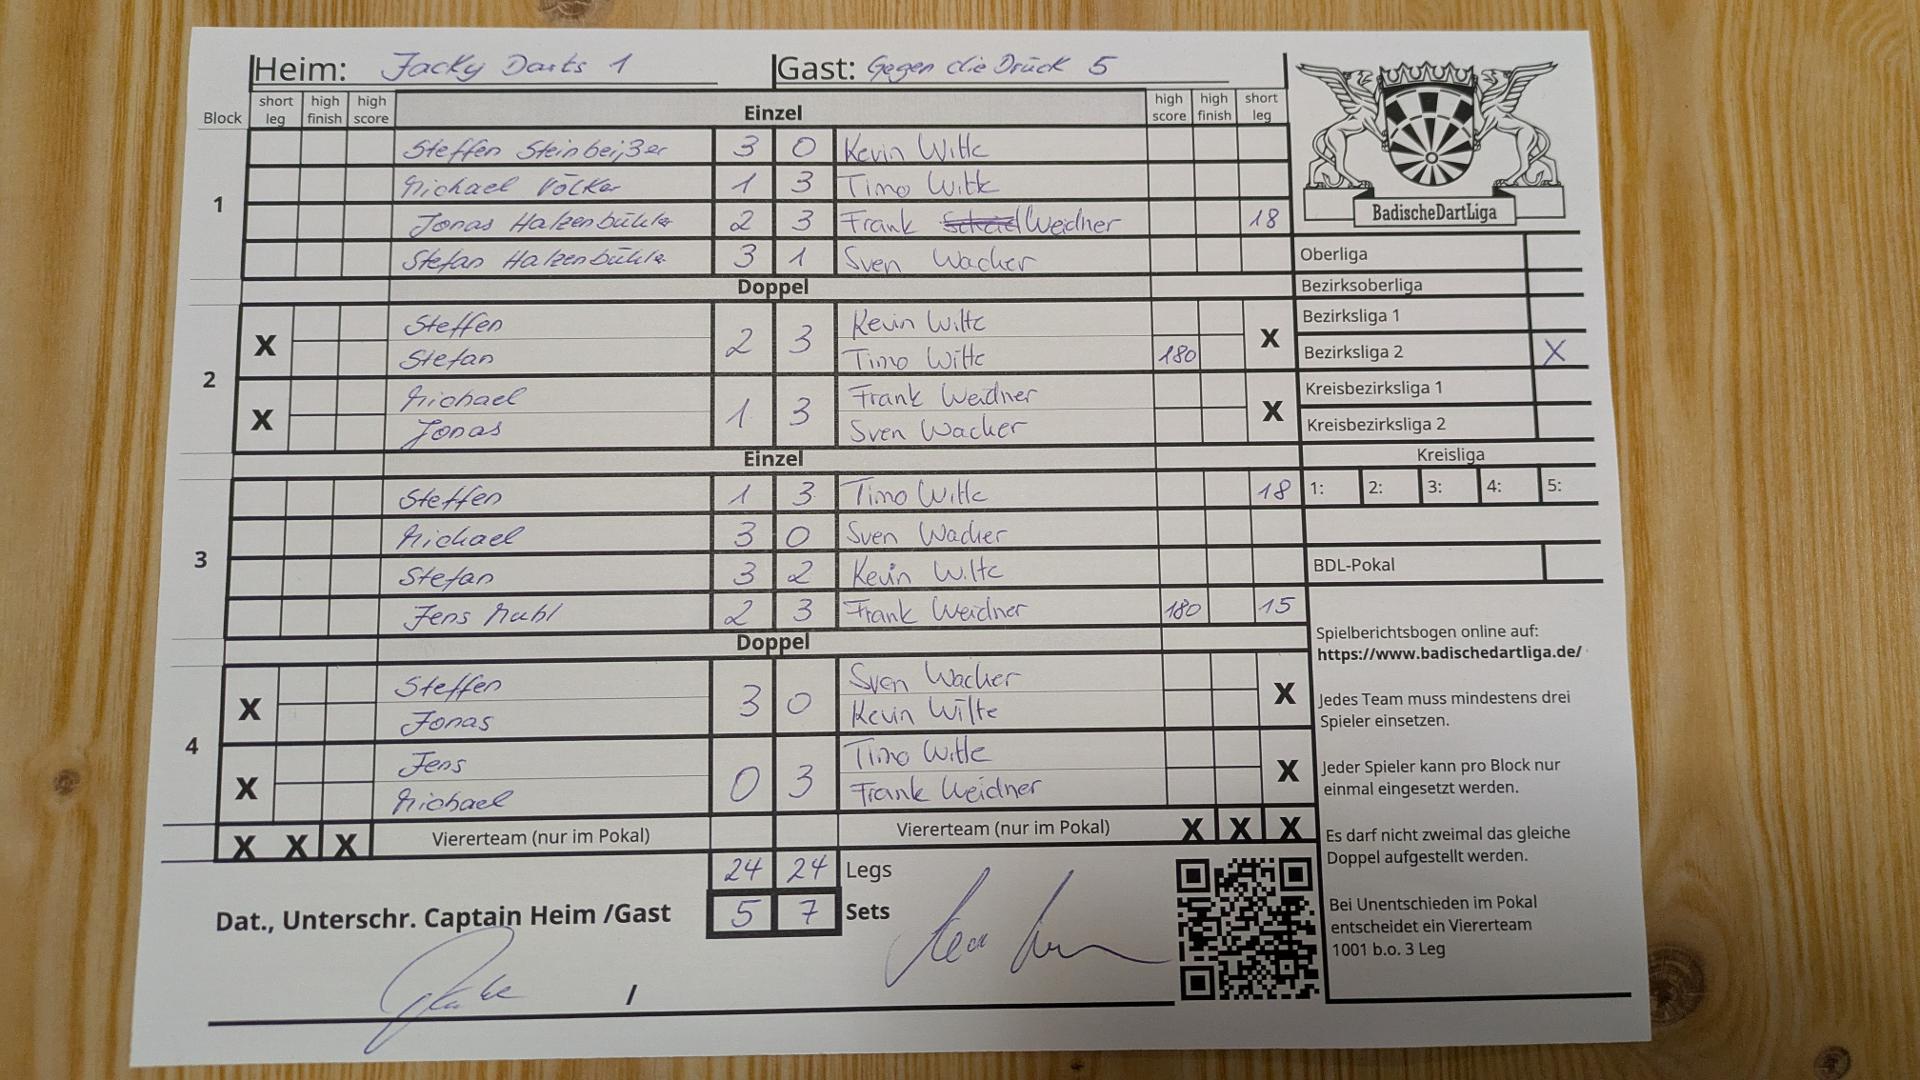 Heim: Jacky Darts 1 Gast: Gegen die Drück 5
Block short leg high finish high score Einzel high score high finish short leg
1
Steffen Steinbeißer 3 0 Kevin Witte
Michael Völker 1 3 Timo Witte
Jonas Halzenbühler 2 3 Frank Weidner 18
Stefan Halzenbühler 3 1 Sven Wacker
BadischeDartLiga
Doppel
2
X Steffen 2 3 Kevin Witte X
Stefan Timo Witte 180
X Michael 1 3 Frank Weidner X
Jonas Sven Wacker
Einzel
3
Steffen 1 3 Timo Witte 18
Michael 3 0 Sven Wacker
Stefan 3 2 Kevin Witte
Jens Muhl 2 3 Frank Weidner 180 15
Doppel
4
X Steffen 3 0 Sven Wacker X
Jonas Kevin Witte
X Jens 0 3 Timo Witte X
Michael Frank Weidner
X X X Vierterteam (nur im Pokal) Vierterteam (nur im Pokal) X X X
24 24 Legs
5 7 Sets
Dat., Unterschr. Captain Heim /Gast
/
Oberliga
Bezirksoberliga
Bezirksliga 1
Bezirksliga 2 X
Kreisbezirksliga 1
Kreisbezirksliga 2
Kreisliga
1: 2: 3: 4: 5:
BDL-Pokal
Spielberichtsbogen online auf:
https://www.badischedartliga.de/
Jedes Team muss mindestens drei
Spieler einsetzen.
Jeder Spieler kann pro Block nur
einmal eingesetzt werden.
Es darf nicht zweimal das gleiche
Doppel aufgestellt werden.
Bei Unentschieden im Pokal
entscheidet ein Viererteam
1001 b.o. 3 Leg